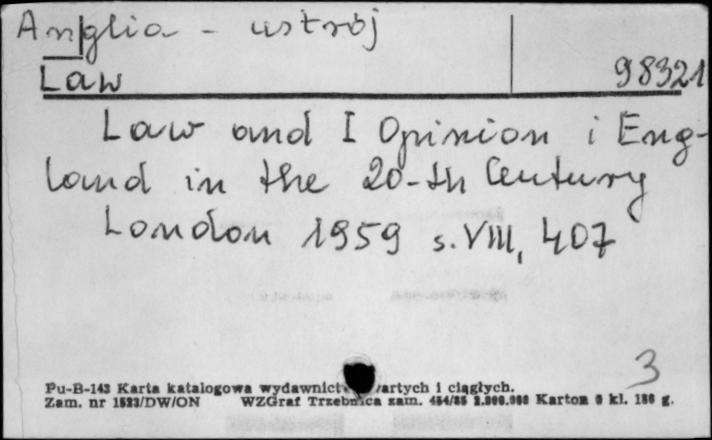 Anglia - ustrój
Law 98321
Law and I Opinion i Eng-
land in the 20-th Century
London 1959 s. VIII, 407
3
Pu-B-143 Karta katalogowa wydawnict artych i ciągłych.
Zam. nr 1523/DW/ON WZGraf Trzebnica zam. Karton kl. g.